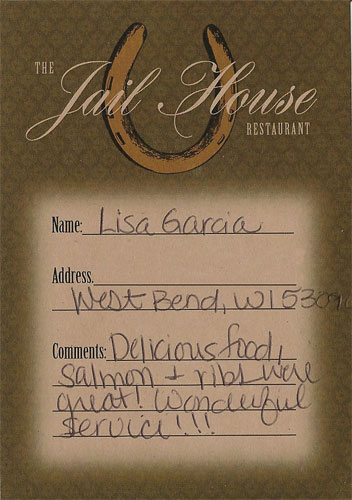 THE
Jail House
RESTAURANT
Name: Lisa Garcia
Address.
West Bend, WI 53090
Comments: Delicious food,
salmon + ribs were
great! Wonderful
service!!!